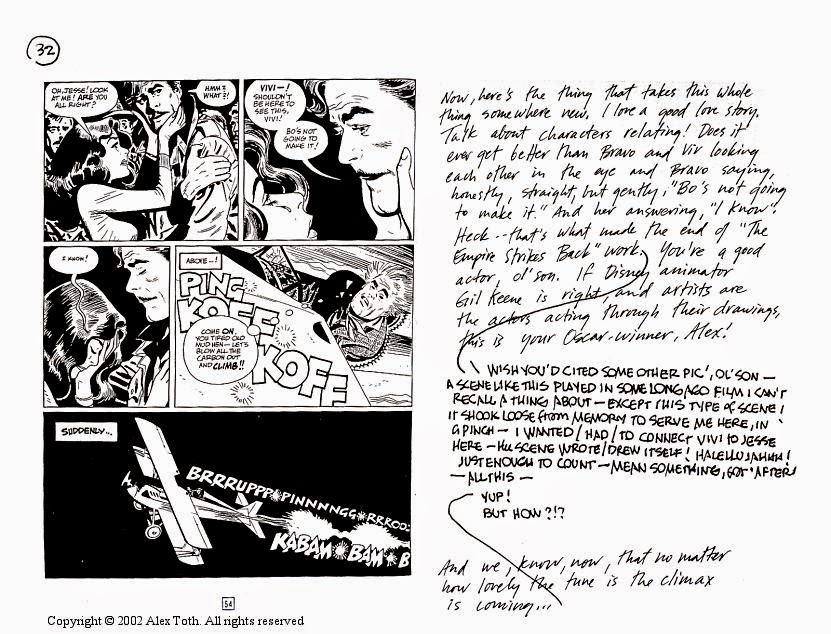 32
OH, JESSE! LOOK
AT ME! ARE YOU
ALL RIGHT?
HMM?
WHAT?!
VIVI—!
SHOULDN'T
BE HERE TO
SEE THIS,
VIVI!
BO'S NOT
GOING TO
MAKE IT!
I KNOW!
ABOVE—!
PING
KOFF
KOFF
COME ON,
YOU TIRED OLD
MUD HEN—LET'S
BLOW ALL THE
CARBON OUT
AND CLIMB!!
SUDDENLY...
BRRRUPPP*PINNNNGG*RRROO
KABAM*BAM*B
54
Now, here's the thing that takes this whole
thing somewhere new. I love a good love story.
Talk about characters relating! Does it
ever get better than Bravo and Viv looking
each other in the eye and Bravo saying,
honestly, straight, but gently, "Bo's not going
to make it." And her answering, "I know"!
Heck -- that's what made the end of "The
Empire Strikes Back" work. You're a good
actor, ol' son. If Disney animator
Gil Keene is right, and artists are
the actors acting through their drawings,
this is your Oscar-winner, Alex!
WISH YOU'D CITED SOME OTHER PIC', OL' SON —
A SCENE LIKE THIS PLAYED IN SOME LONG AGO FILM I CAN'T
RECALL A THING ABOUT — EXCEPT THIS TYPE OF SCENE!
IT SHOOK LOOSE FROM MEMORY TO SERVE ME HERE, IN
A PINCH — I WANTED/HAD/TO CONNECT VIVI TO JESSE
HERE — SCENE WROTE/DREW ITSELF! HALELLUJAHHH!
JUST ENOUGH TO COUNT — MEAN SOMETHING, 'AFTER
— ALL THIS —
YUP!
BUT HOW?!?
And we, know, now, that no matter
how lovely the tune is the climax
is coming...
Copyright © 2002 Alex Toth. All rights reserved